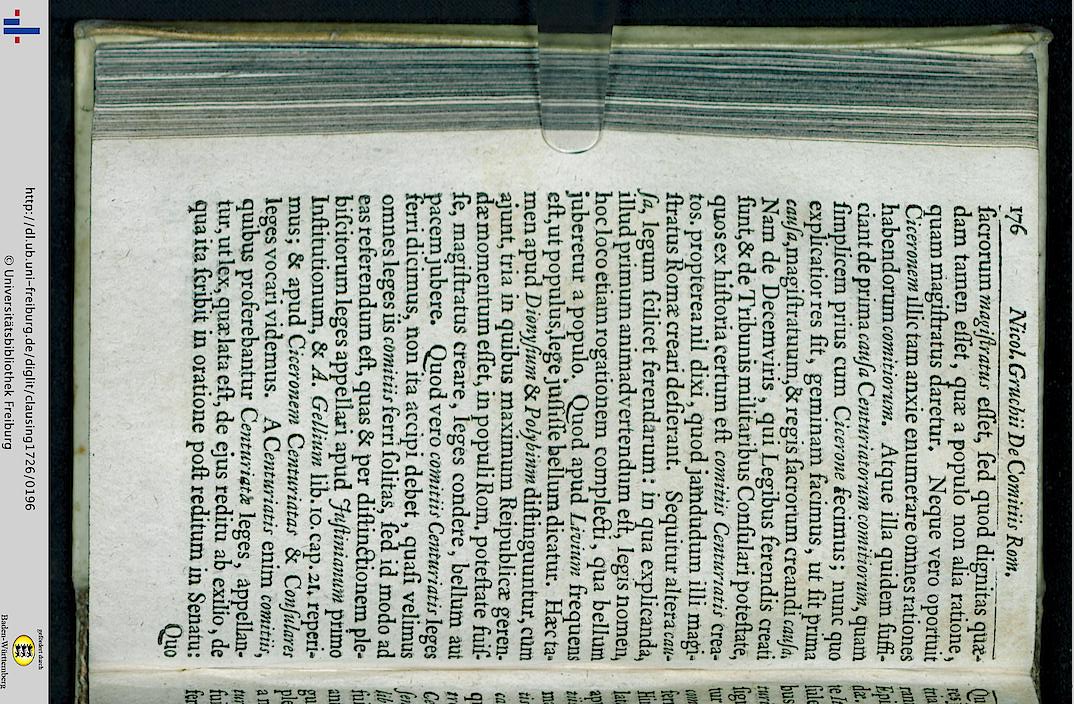 176 Nicol. Gruchii De Comitiis Rom.
ſacrorum magiſtratus eſſet, ſed quod dignitas quæ-
dam tamen eſſet, quæ a populo non alia ratione,
quam magiſtratus daretur. Neque vero oportuit
Ciceronem illic tam anxie enumerare omnes rationes
habendorum comitiorum. Atque illa quidem ſuffi-
ciant de prima cauſa Centuriatorum comitiorum, quam
ſimplicem prius cum Cicerone fecimus; nunc quo
explicatior res ſit, geminam facimus, ut ſit prima
cauſa, magiſtratuum, & regis ſacrorum creandi cauſa.
Nam de Decemviris, qui Legibus ferendis creati
ſunt, & de Tribunis militaribus Conſulari poteſtate,
quos ex hiſtoria certum eſt comitiis Centuriatis crea-
tos, propterea nil dixi, quod jamdudum illi magi-
ſtratus Romæ creari deſierant. Sequitur altera cau-
ſa, legum ſcilicet ferendarum: in qua explicanda,
illud primum animadvertendum eſt, legis nomen,
hoc loco etiam rogationem complecti, qua bellum
juberetur a populo. Quod apud Livium frequens
eſt, ut populus, lege juſſiſſe bellum dicatur. Hæc ta-
men apud Dionyſium & Polybium diſtinguuntur, cum
ajunt, tria in quibus maximum Reipublicæ geren-
dæ momentum eſſet, in populi Rom, poteſtate fuiſ-
ſe, magiſtratus creare, leges condere, bellum aut
pacem jubere. Quod vero comitiis Centuriatis leges
ferri dicimus, non ita accipi debet, quaſi velimus
omnes leges iis comitiis ferri ſolitas, ſed id modo ad
eas referendum eſt, quas & per diſtinctionem ple-
biſcitorum leges appellari apud Juſtinianum primo
Inſtitutionum, & A. Gellium lib. 10. cap. 21. reperi-
mus; & apud Ciceronem Centuriatas & Conſulares
leges vocari videmus. A Centuriatis enim comitiis,
quibus proferebantur Centuriatæ leges, appellan-
tur, ut lex, quæ lata eſt, de ejus reditu ab exilio, de
qua ita ſcribit in oratione poſt reditum in Senatu:
Quo
http://dl.ub.uni-freiburg.de/diglit/clausing1726/0196
© Universitätsbibliothek Freiburg
gefördert durch
Baden-Württemberg